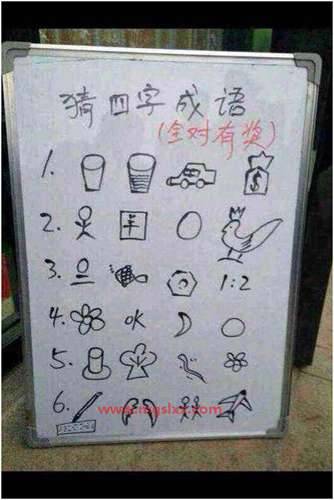 猜四字成语
(全对有奖)
1.
2.
3. 1:2
4. OK
5.
6.
www.mgslxx.com